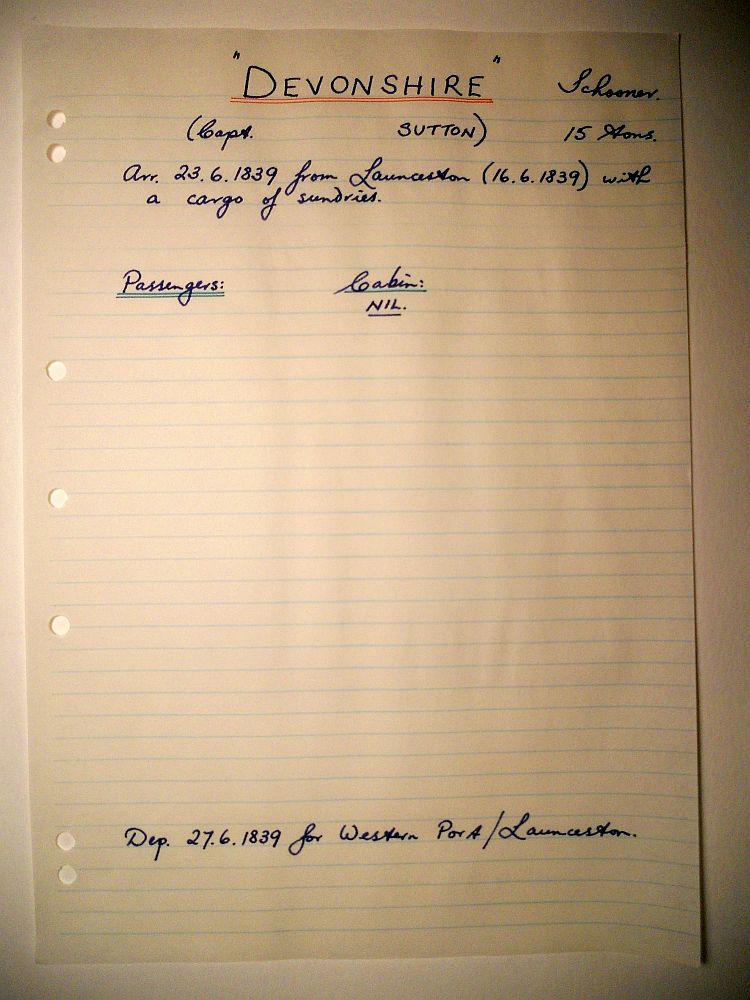 "DEVONSHIRE" Schooner.
(Capt. SUTTON) 15 tons.
Arr. 23.6.1839 from Launceston (16.6.1839) with
a cargo of sundries.
Passengers: Cabin:
NIL.
Dep. 27.6.1839 for Western Port/Launceston.